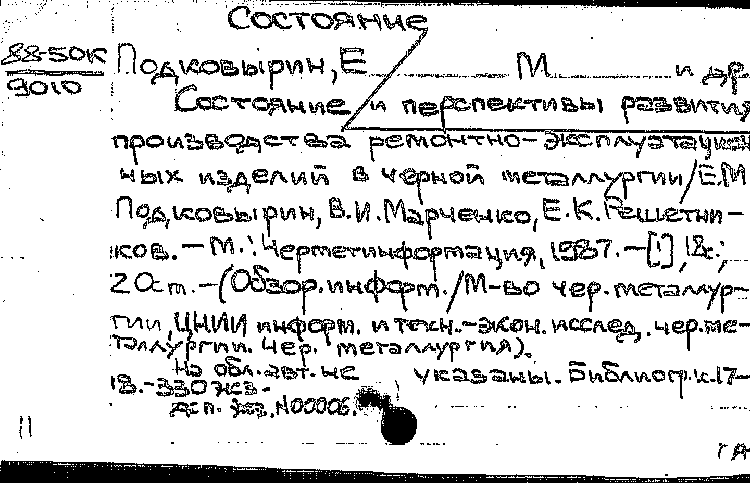 Состояние
88-50К
9010
Подковырин, Е М и др
Состояние и перспективы развития
производства ремонтно-эксплуатацион
ных изделий в черной металлургии/Е.М
Подковырин, В.И.Марченко, Е.К.Решетни-
ков. - М.: Черметинформация, 1987. -[1], 18с.;
20см. -(Обзор.информ./М-во чер.металлур-
гии, ЦНИИ информ. и техн.-экон. исслед. чер.ме-
таллургии. Чер. металлургия).
На обл.авт.не указаны. Библиогр.:с.17-
18.-330экз.
дсп. экз.N00006.
11